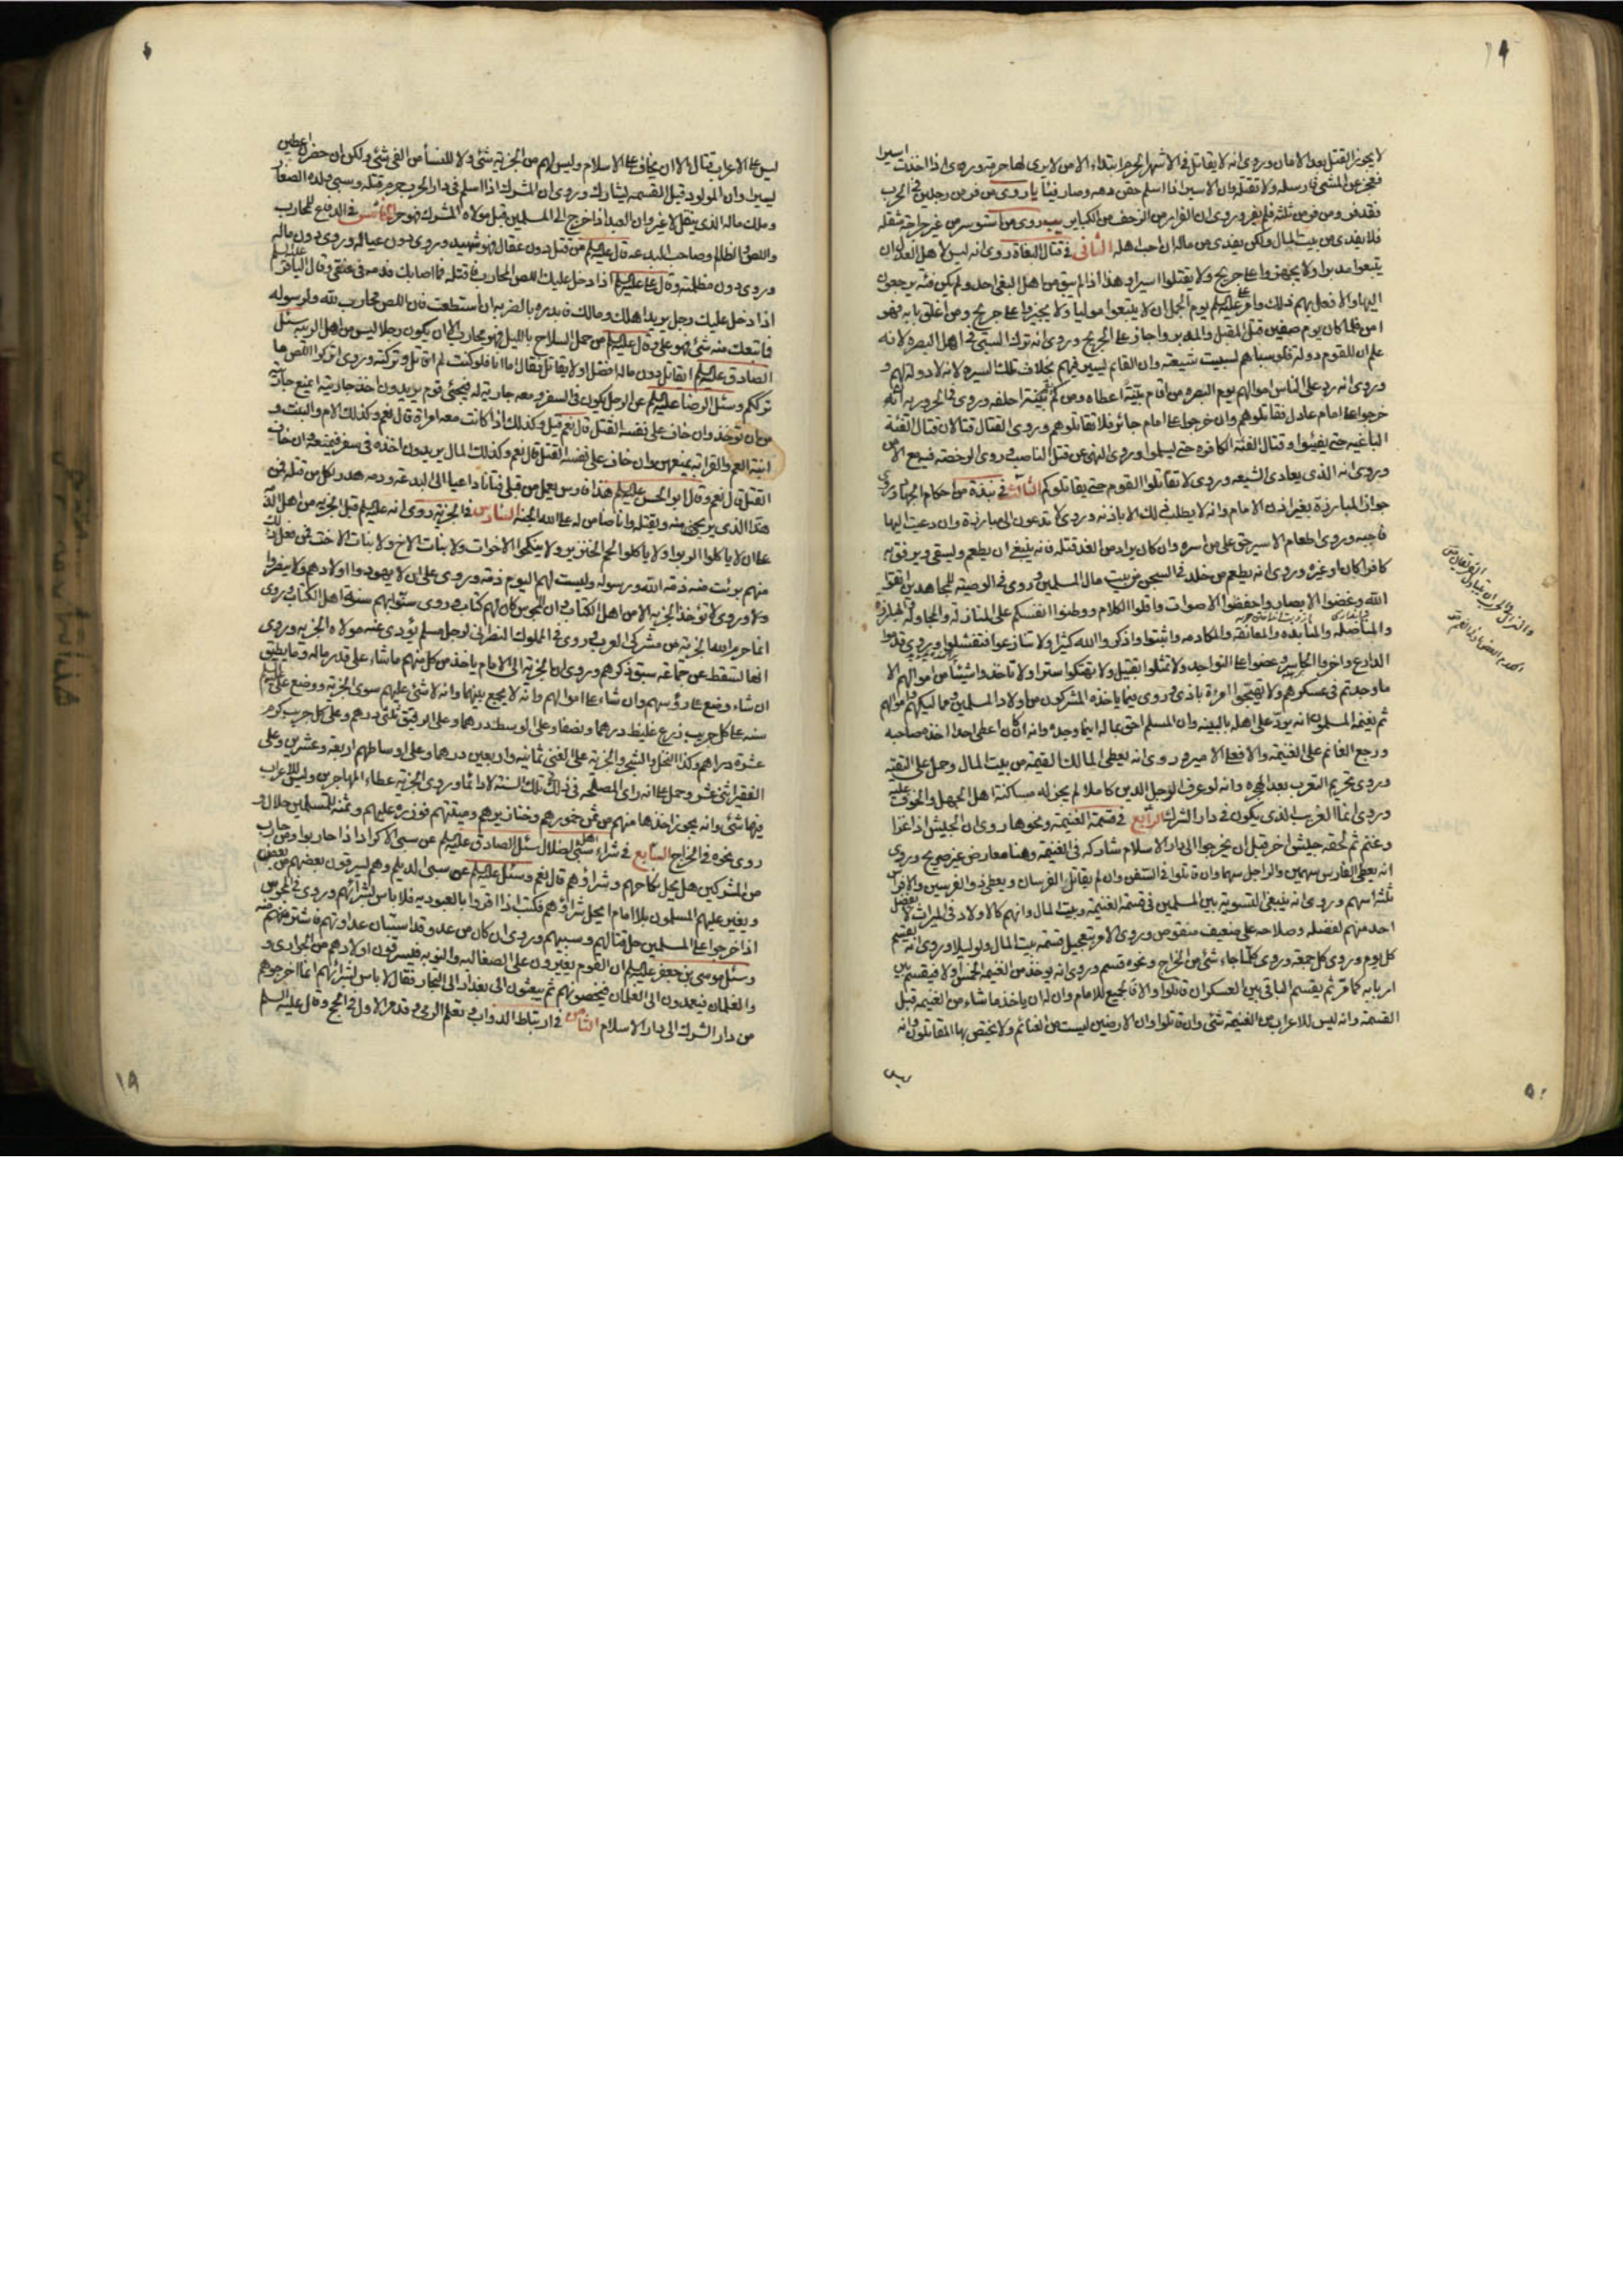 لا يجوز القتل بعد الامان وروى انه لا يقاتل فى الاشهر الحرم ابتداء الا من لا يرى لها حرمة وروى اذا اخذت اسيرا
فعجز عن المشى فارسله ولا تقتله وان الاسير اذا اسلم حقن دمه وصار فيئا وروى من فر من رجلين فى الحرب
فقد فر ومن فر من ثلثة فلم يفر وروى ان الفرار من الزحف من الكباير وروى من استوسر من غير جراحة مثقلة
فلا يفدى من بيت المال ولكن يفدى من ماله ان احب اهله الثانى فى قتال البغاة روى انه ليس لاهل العدل ان
يتبعوا مدبرا ولا يجهزوا على جريح ولا يقتلوا اسيرا وهذا اذا لم يبق من اهل البغى احد ولم يكن فئة يرجعون
اليها والا فعل بهم ذلك وامر على عليه السلم يوم الجمل ان لا يتبعوا موليا ولا يجيزوا على جريح ومن اغلق بابه فهو
امن فلما كان يوم صفين قتل المقبل والمدبر واجاز على الجريح وروى انه ترك السبى فى اهل البصره لانه
علم ان للقوم دولة فلو سباهم لسبيت شيعته وان القائم يسير فيهم بخلاف تلك السيره لانه لا دولة لهم و
وروى انه رد على الناس اموالهم يوم البصره من اقام بينة اعطاه ومن لم يقم بينة احلفه وروى فى الحروريه انهم
خرجوا على امام عادل فقاتلوهم وان خرجوا على امام جائر فلا تقاتلوهم وروى القتال قتالان قتال الفئة
الباغيه حتى يفيئوا وقتال الفئة الكافره حتى يسلموا وروى النهى عن قتل الناصب وروى الرخصة فيه مع الامن
وروى انه الذى يعادى الشيعه وروى لا تقاتلوا القوم حتى يقاتلوكم الثالث فى نبذة من احكام الجهاد وروى
جواز المبارزة بغير اذن الامام وانه لا يطلب ذلك الا باذنه وروى لا تدعون الى مبارزة وان دعيت اليها
فاجبه وروى اطعام الاسير حق على من اسره وان كان يراد من الغد قتله فانه ينبغى ان يطعم ويسقى ويرفق به
كافرا كان او غيره وروى انه يطعم من خلد فى السجن من بيت مال المسلمين وروى فى الوصية للمجاهدين اتقوا
الله وغضوا الابصار واحفظوا الاصوات واقلوا الكلام ووطنوا انفسكم على المنازلة والمجاولة والمبارزه
والمناضله والمنابده والمعانقة والمكادمه واثبتوا واذكروا الله كثيرا ولا تنازعوا فتفشلوا وروى قدموا
الدارع واخروا الحاسر وعضوا على النواجد ولا تمثلوا بقتيل ولا تهتكوا سترا ولا تاخذوا شيئا من اموالهم الا
ما وجدتم فى عسكرهم ولا تهيجوا امرءة باذى وروى فيما ياخذه المشركون من اولاد المسلمين ومماليكهم واموالهم
ثم يغنمه المسلمون انه يرد على اهله بالبينه وان المسلم احق بماله اينما وجده وانه ان كان اعطى احدا اخذه صاحبه
ورجع الغانم على الغنيمة والا فعلى الامير وروى انه يعطى المالك القيمة من بيت المال وحمل على التقيه
وروى تحريم التعرب بعد الهجره وانه لو عرف الرجل الدين كاملا لم يجز له مساكنة اهل الجهل والخوف عليه
وروى انما الغريب الذى يكون فى دار الشرك الرابع فى قسمة الغنيمة ونحوها روى ان الجيش اذا غزا
وغنم ثم لحقه جيش اخر قبل ان يخرجوا الى دار الاسلام شاركه فى الغنيمة وهنا معارض غير صريح وروى
انه يعطى الفارس سهمين والراجل سهما وان قاتلوا فى السفن وان لم يقاتل الفرسان ويعطى ذو الفرسين والافراس
ثلثة اسهم وروى انه ينبغى التسوية بين المسلمين فى قسمة الغنيمة وبيت المال وانهم كالاولاد فى الميراث لا يفضل
احد منهم لفضله وصلاحه على ضعيف منقوص وروى الامر بتعجيل قسمة بيت المال ولو ليلا وروى انه يقسم
كل يوم وروى كل جمعة وروى كلما جاء شئ من الخراج ونحوه قسم وروى انه يوخذ من الغنيمة الخمس اولا فيقسم بين
اربابه كما مر ثم يقسم الباقى بين العسكر ان قاتلوا والا فالجميع للامام وان له ان ياخذ ما شاء من الغنيمة قبل
القسمة وانه ليس للاعراب من الغنيمة شئ وان قاتلوا وان الارضين ليست من الغنائم ولا يختص بها المقاتلون وانه
ليس
ليس على الاعراب قتال الا ان يخاف على الاسلام وليس لهم من الجزية شئ ولا للنساء من الفى شئ ولكن ان حضرن اعطين
يسيرا وان المولود قبل القسمه يشارك وروى ان المشرك اذا اسلم فى دار الحرب حرم قتله وسبى ولده الصغار
وملك ماله الذى ينتقل لا غير وان العبد اذا خرج الى المسلمين قبل مولاه المشرك فهو حر الخامس فى الدفاع للمحارب
واللص والظالم وصاحب البدعه قال عليه السلم من قتل دون عقال فهو شهيد وروى دون عياله وروى دون ماله
وروى دون مظلمته وقال على عليه السلم اذا دخل عليك اللص المحارب فاقتله فما اصابك فدمه فى عنقى وقال الباقر عليه السلم
اذا دخل عليك رجل يريد اهلك ومالك فابدره بالضربه ان استطعت فان اللص محارب لله ولرسوله
فما تبعك منه شئ فهو على وقال عليه السلم من حمل السلاح بالليل فهو محارب الا ان يكون رجلا ليس من اهل الريبه سئل
الصادق عليه السلم ايقاتل دون ماله افضل او لا يقاتل فقال اما انا فلو كنت لم اقاتل وتركته وروى اتركوا اللص ما
ترككم وسئل الرضا عليه السلم عن الرجل يكون فى السفر ومعه جارية له فيجئ قوم يريدون اخذ جاريته ايمنع جاريته
من ان توخذ وان خاف على نفسه القتل قال نعم قيل وكذلك اذا كانت معه امراة قال نعم وكذلك الام والبنت و
ابنة العم والقرابة يمنعهن وان خاف على نفسه القتل قال نعم وكذلك المال يريدون اخذه فى سفر فيمنعه وان خاف
القتل قال نعم وقال ابو الحسن عليه السلم هذا فارس يعمل من قبلى فتانا داعيا الى البدعة ودمه هدر لكل من قتله فمن
هذا الذى يريحنى منه ويقتله وانا ضامن له على الله الجنة السادس فى الجزية روى انه عليه السلم قبل الجزيه من اهل الذمة
على ان لا ياكلوا الربوا ولا ياكلوا لحم الخنزير ولا ينكحوا الاخوات ولا بنات الاخ ولا بنات الاخت فمن فعل ذلك
منهم برئت منه ذمة الله ورسوله وليست لهم اليوم ذمة وروى على ان لا يهودوا اولادهم ولا ينصروا
وروى لا تؤخذ الجزيه الا من اهل الكتاب وان المجوس كان لهم كتاب وروى سنوا بهم سنة اهل الكتاب وروى
انما حرم الله الجزية من مشركى العرب وروى فى المملوك النصرانى لرجل مسلم يؤدى عنه مولاه الجزيه وروى
انها تسقط عن جماعة سبق ذكرهم وروى ان الجزية الى الامام ياخذ من كل منهم ما شاء على قدر ماله وما يطيق
ان شاء وضع على رؤسهم وان شاء على اموالهم وانه لا يجمع بينهما وانه لا شئ عليهم سوى الجزية ووضع على عليه السلم
سنه على كل جريب زرع غليظ درهما ونصفا وعلى الوسط درهما وعلى الرقيق ثلثى درهم وعلى كل جريب كرم
عشرة دراهم وكذا النخل والشجر والجزية على الغنى ثمانية واربعين درهما وعلى اوساطهم اربعة وعشرين وعلى
الفقير اثنى عشر وحمل على انه راى المصلحه فى ذلك تلك السنة لا دائما وروى الجزية عطاء المهاجرين وليس للاعراب
فيها شئ وانه يجوز اخذها منهم من ثمن خمورهم وخنازيرهم وميتتهم فوزره عليهم وثمنه للمسلمين حلال و
روى نحوه فى الخراج السابع فى شراء سبى اهل الضلال سئل الصادق عليه السلم عن سبى الاكراد اذا حاربوا ومن حارب
من المشركين هل يحل نكاحهم وشراؤهم قال نعم وسئل عليه السلم عن سبى الديلم وهم يسرقون بعضهم من بعض
ويغير عليهم المسلمون بلا امام ايحل شراؤهم فكتب اذا اقروا بالعبوديه فلا باس بشرائهم وروى فى المجوس
اذا خرجوا على المسلمين حل قتالهم وسبيهم وروى ان كان من عدو قد استبان عداوتهم فاشتر منهم
وسئل موسى بن جعفر عليه السلم ان القوم يغيرون على الصقالبه والنوبه فيسرقون اولادهم من الجوارى و
والغلمان فيعمدون الى الغلمان فيخصونهم ثم يبعثون الى بغداد الى التجار فقال لا باس بشرائهم انما اخرجوهم
من دار الشرك الى دار الاسلام الثامن فى ارتباط الدواب وتعلم الرمى وقد مر الاول فى الحج وقال عليه السلم